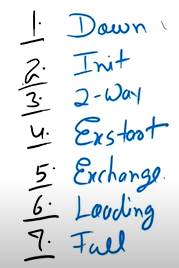 1. Down
2. Init
3. 2-Way
4. Exstart
5. Exchange.
6. Loading
7. Full